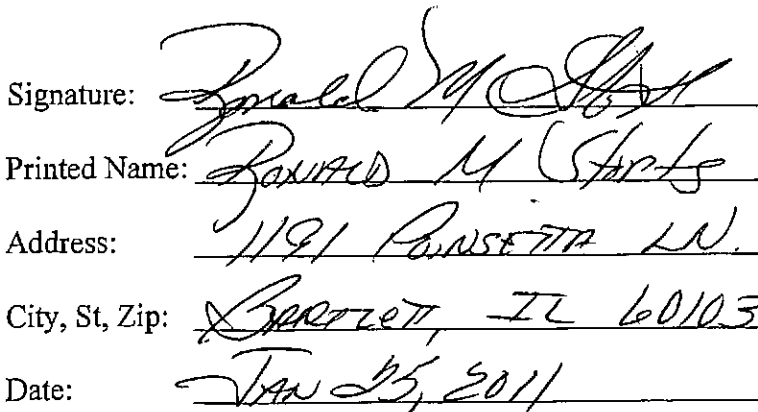 Signature: Ronald M
Printed Name: RONALD M
Address: 1191 POINSETTA LN.
City, St, Zip: BARTLETT, IL 60103
Date: JAN 25, 2011